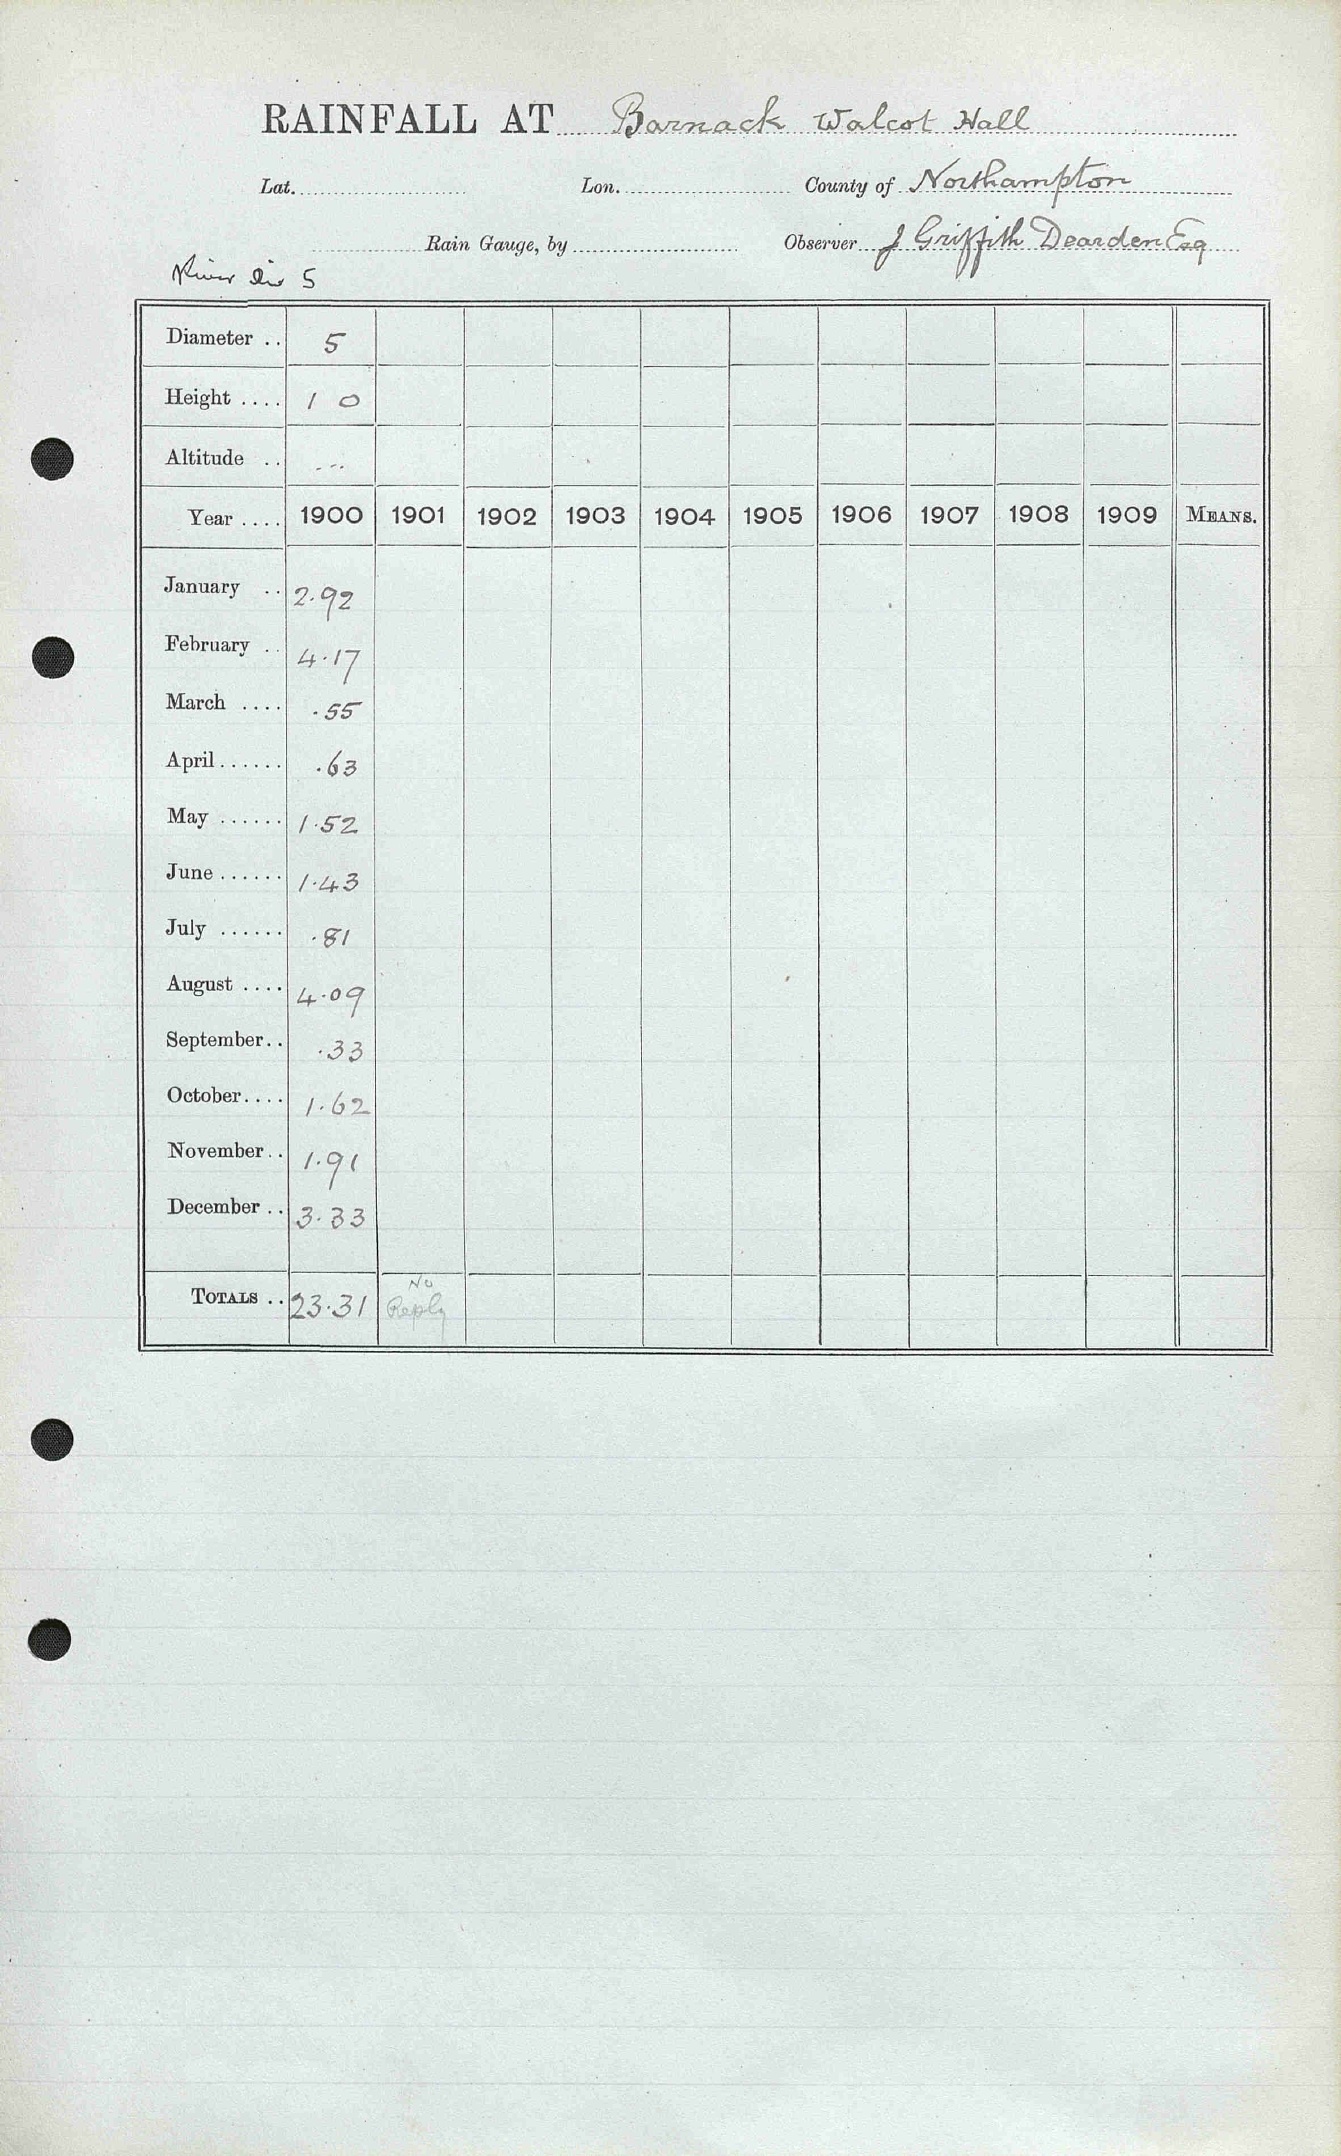 RAINFALL AT Barnack Walcot Hall
Lat. Lon. County of Northampton
Rain Gauge, by Observer J Griffith Dearden Esq
River Div 5
Diameter .. 5
Height .... 1 0
Altitude .. ...
Year .... 1900 1901 1902 1903 1904 1905 1906 1907 1908 1909 MEANS.
January .. 2.92
February .. 4.17
March .... .55
April ...... .63
May ...... 1.52
June ...... 1.43
July ...... .81
August .... 4.09
September .. .33
October .... 1.62
November .. 1.91
December .. 3.33
TOTALS .. 23.31 No Reply